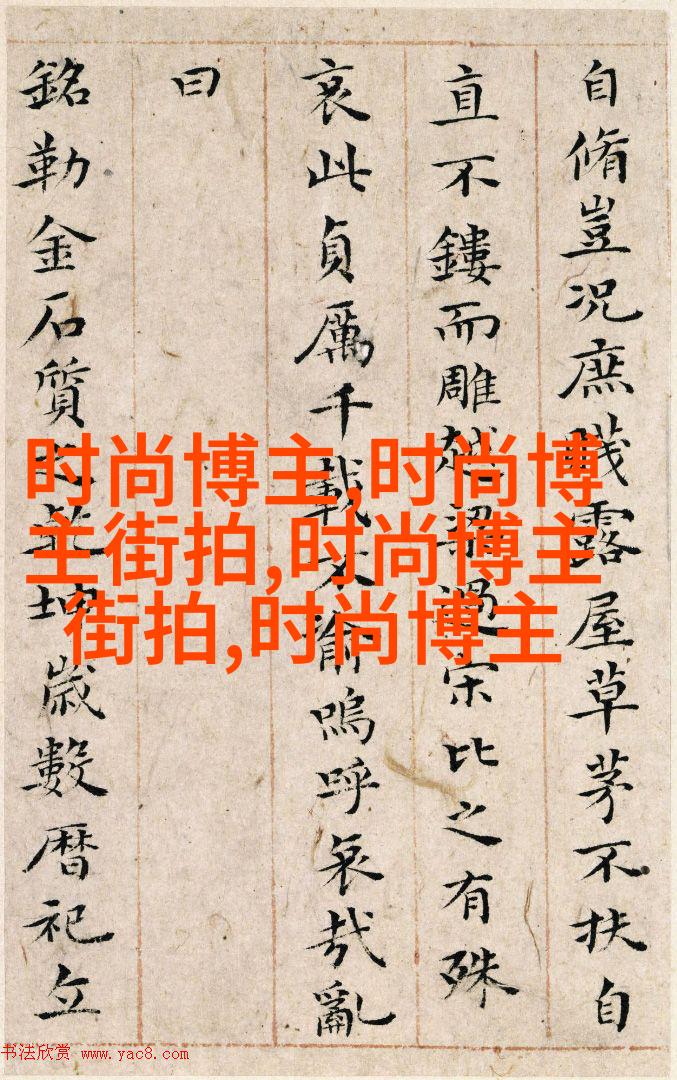 自脩豈況庶賤露屋草茅不扶自
直不鏤而雕越梁過宋比之有殊
哀此貞厲千載不渝嗚呼哀哉亂
曰
銘勒金石質之乾坤歳數暦祀立
时尚博主,时尚博
主街拍,时尚博主
街拍,时尚博主
书法欣赏 www.yac8.com